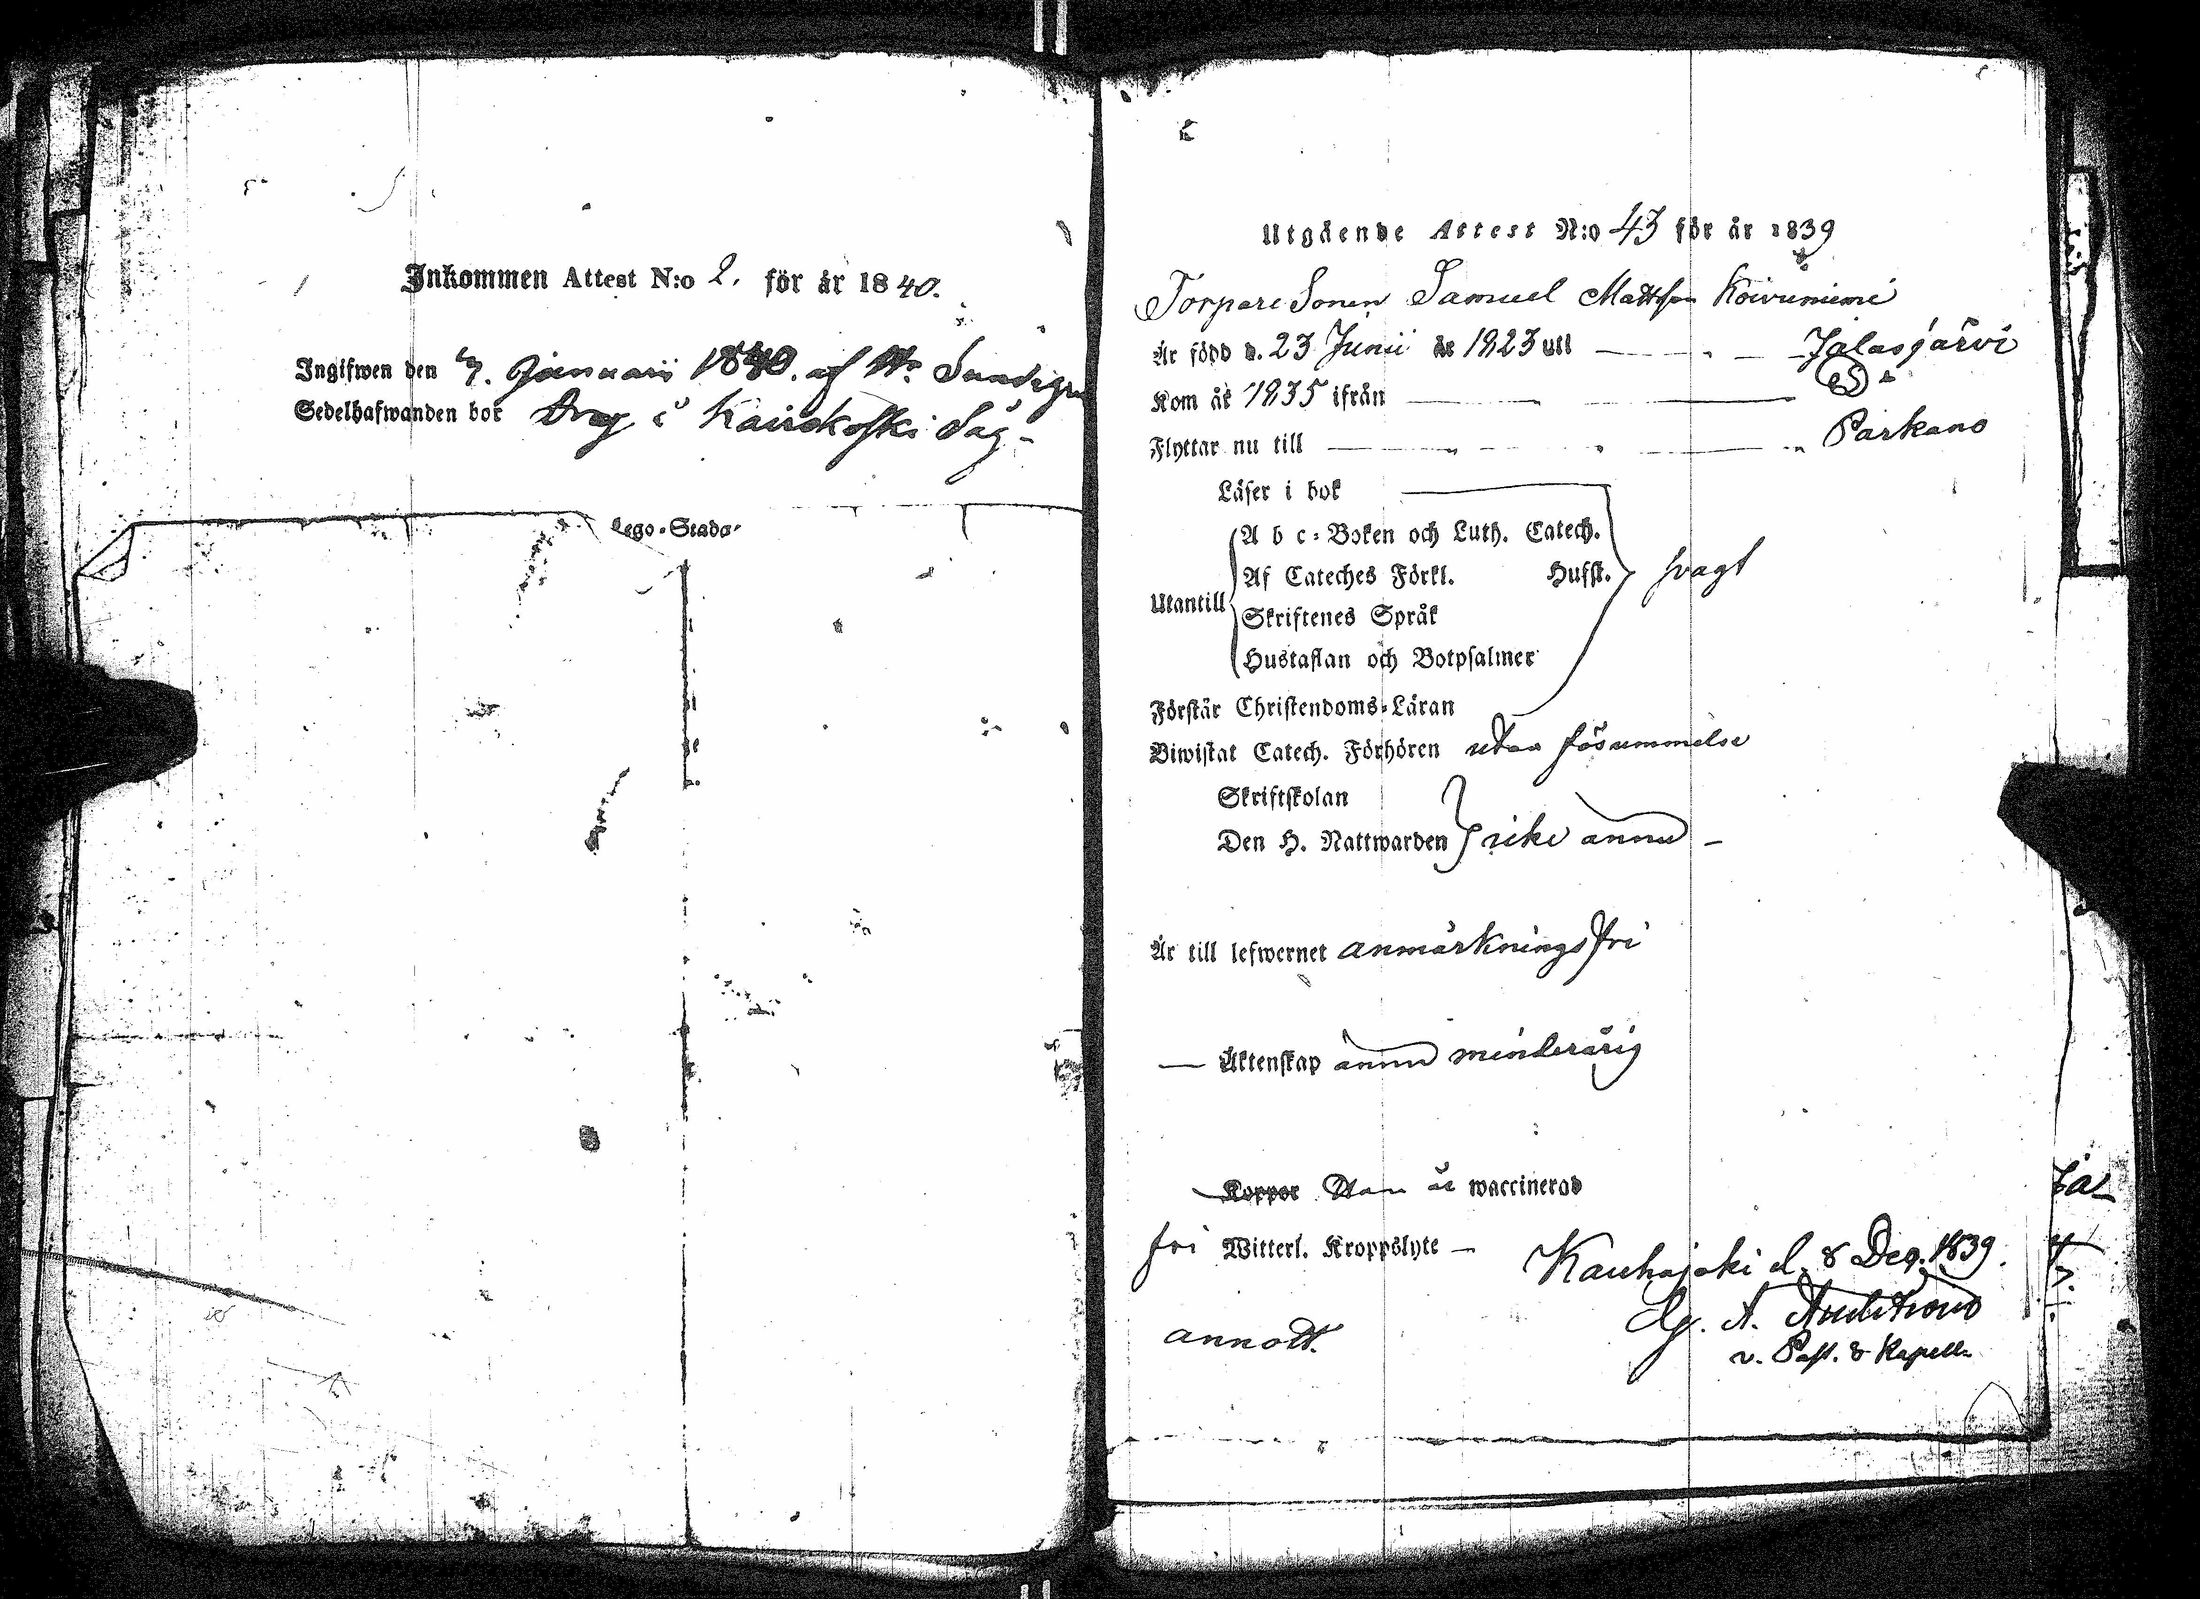 Inkommen Attest N:o 2. för år 1840.
Ingifwen den 7. Januarii 1840. af Hr
Sedelhafwanden bor Drg i Kairokoski Såg-
Lego-Stads-
Utgående Attest N:o 43 för år 1839
Torpare Sonen Samuel Mattsson Koivuniemi
Är född d. 23 Junii år 1823 uti — „ — Jalasjärvi
Kom år 1835 ifrån — „ — D:o
Flyttar nu till — „ — „ — „ Parkano
Läser i bok
A b c-Boken och Luth. Catech.
Af Cateches Förkl. Hufst. svagt
Utantill
Skriftenes Språk
Hustaflan och Botpsalmer
Förstår Christendoms-Läran
Biwistat Catech. Förhören utan försummelse
Skriftskolan
Den H. Nattwarden icke ännu —
Är till lefwernet anmärkningsfri
— Äktenskap ännu minderårig
Koppor Han är waccinerad
fri Witterl. Kroppslyte —
Kauhajoki d. 8 Dec. 1839.
annott.
v. Past. & Kapell.